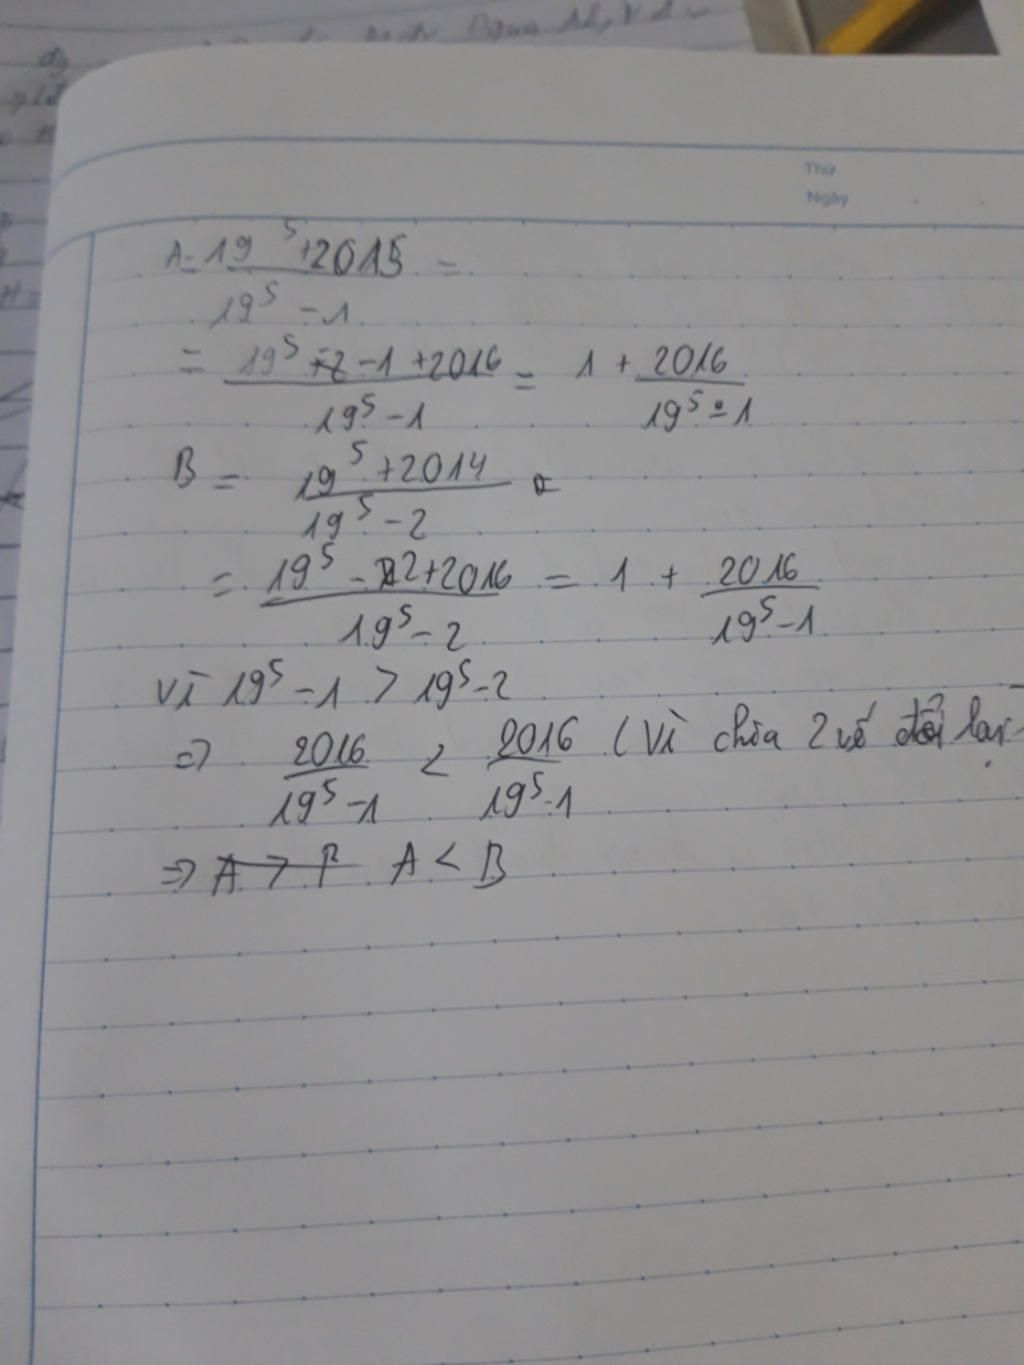 Thứ
Ngày
A = 19^5 + 2015 / 19^5 - 1 =
= 19^5 - 1 + 2016 / 19^5 - 1 = 1 + 2016 / 19^5 - 1
B = 19^5 + 2014 / 19^5 - 2 =
= 19^5 - 2 + 2016 / 19^5 - 2 = 1 + 2016 / 19^5 - 1
Vì 19^5 - 1 > 19^5 - 2
=> 2016 / 19^5 - 1 < 2016 / 19^5 - 1 (Vì chia 2 vế đổi lại
=> A < B